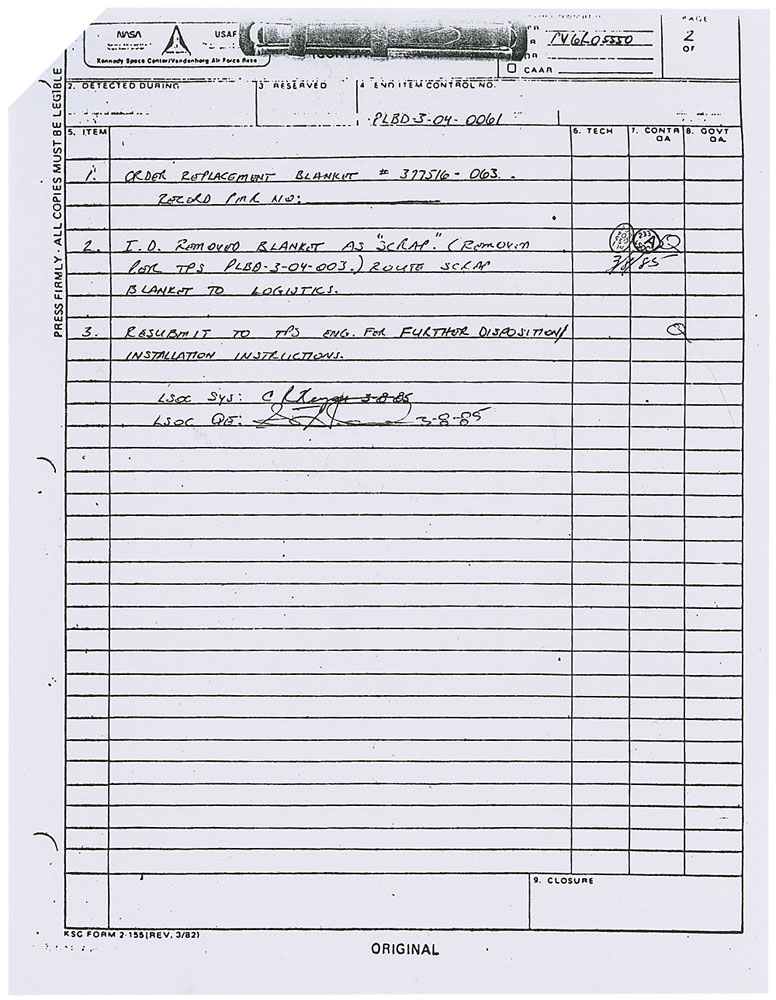 NASA USAF
Kennedy Space Center/Vandenberg Air Force Base
PAGE
2
OF
PV6L05550
CAAR
2. DETECTED DURING 3 RESERVED 4 END ITEM CONTROL NO.
PLBD-3-04-0061
PRESS FIRMLY - ALL COPIES MUST BE LEGIBLE
5. ITEM 6. TECH 7. CONTR QA 8. GOVT QA
1. ORDER REPLACEMENT BLANKET # 377516-063.
RECORD PMR NO:
2. I.D. REMOVED BLANKET AS "SCRAP." (REMOVED Q
PER TPS PLBD-3-04-003.) ROUTE SCRAP 3/8/85
BLANKET TO LOGISTICS.
3. RESUBMIT TO TPS ENG. FOR FURTHER DISPOSITION/ Q
INSTALLATION INSTRUCTIONS.
LSOC SYS: 3-8-85
LSOC QE: 3-8-85
9. CLOSURE
KSC FORM 2-155 (REV. 3/82)
ORIGINAL